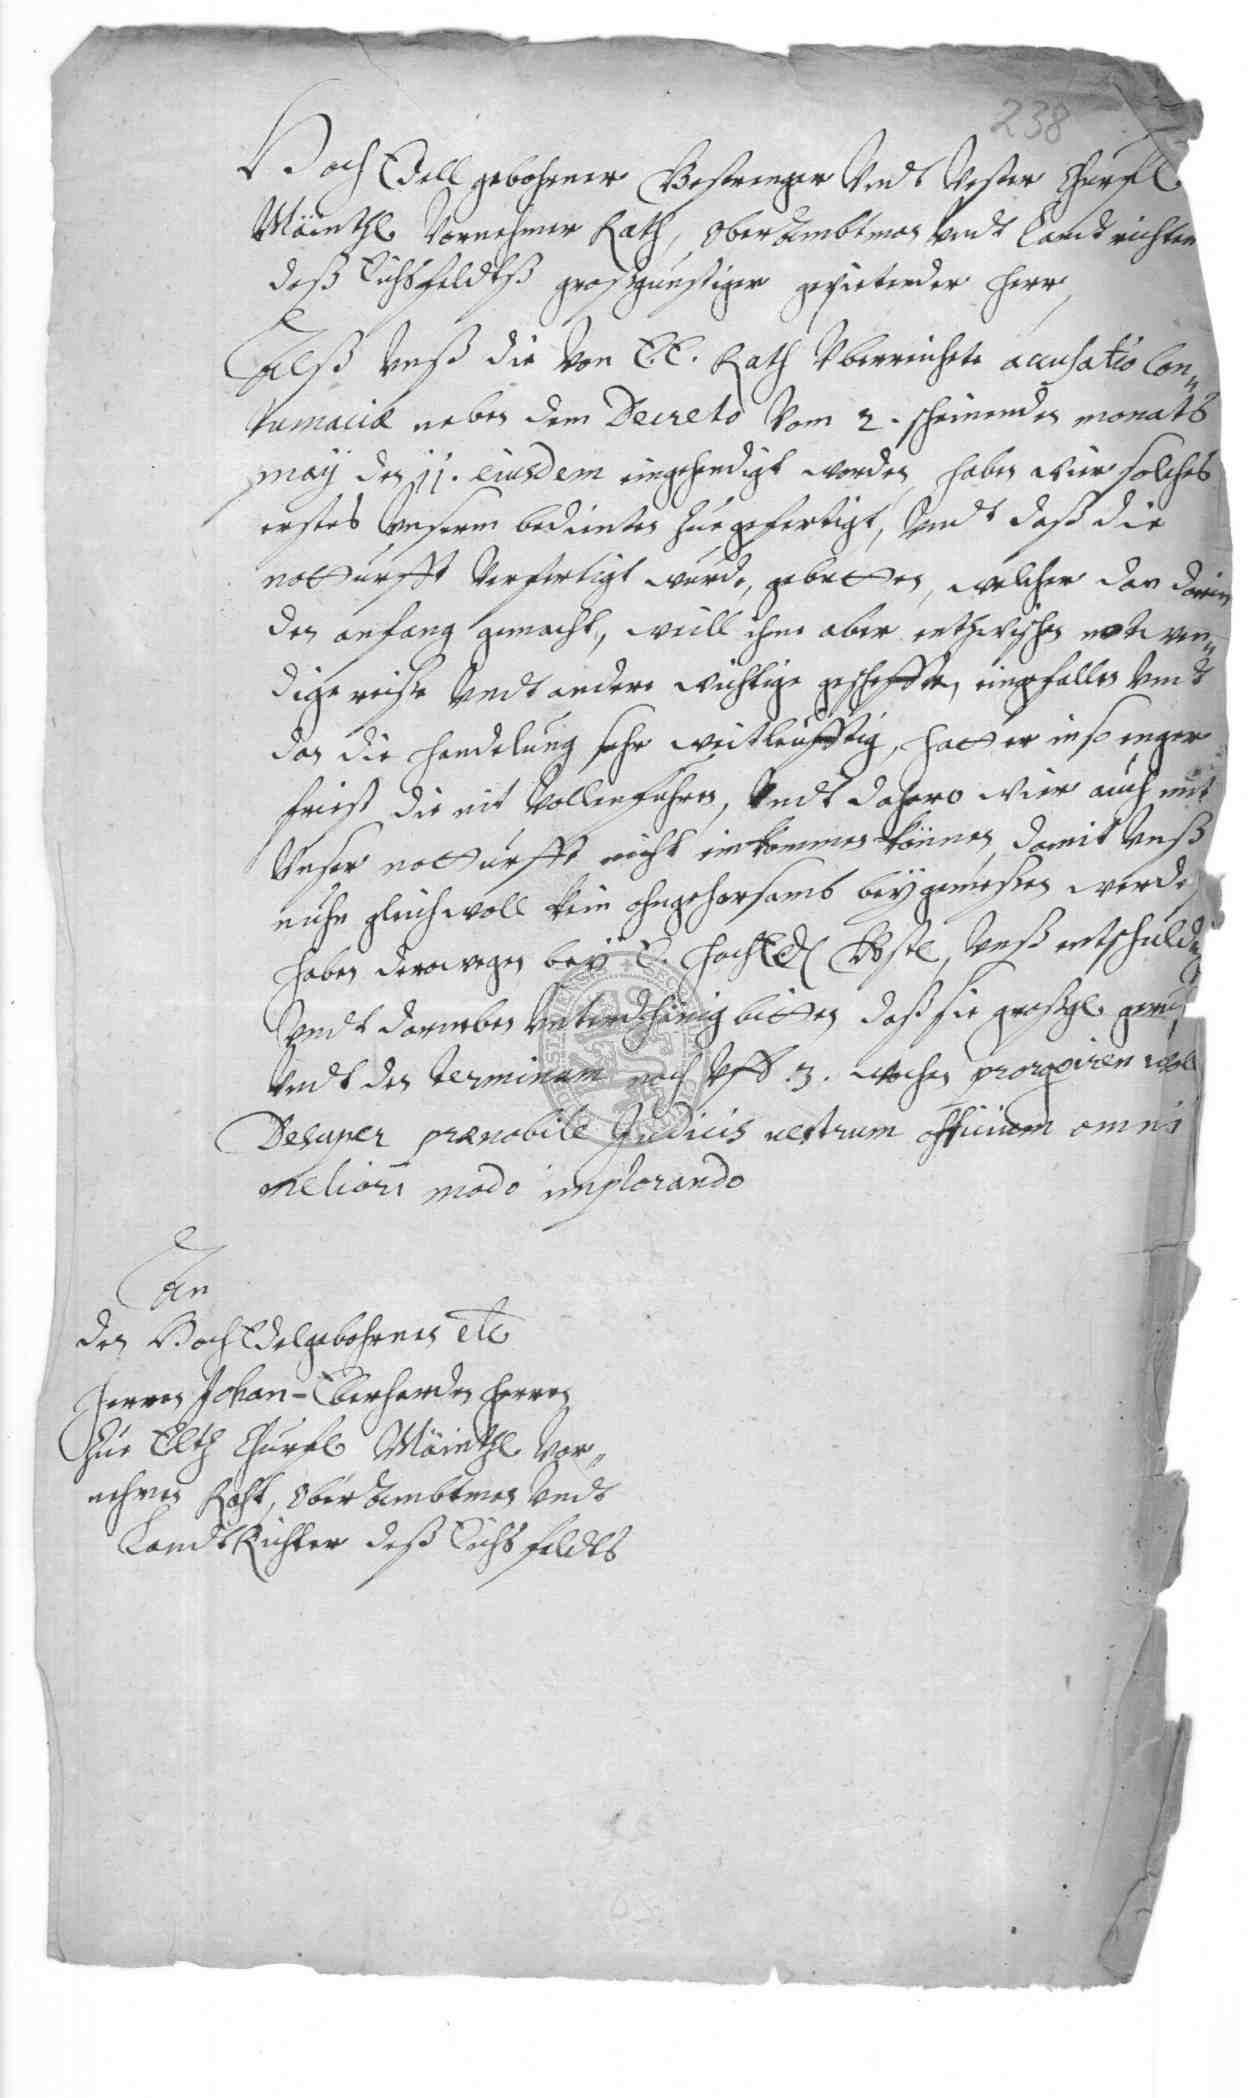 238
Hoch Edell gebohrner Gestrenger Vndt Vester Churfl.
Mäintzl. Vornehmer Rath, Ober Ambtman Vndt Landtrichter
deß Eichßfeldtß großgünstiger gepietender Herr,
Alß Vnß die Von E. E. Rath Vberreichete accusatio Con„
tumaciæ neben dem Decreto Vom 2. scheinenden monats
maÿ den 11. eiusdem eingehendigt worden, haben wier solches
erstes Vnserm bedienten zue gefertigt, Vndt daß die
notturfft Verfertigt würde, gebetten, welcher dan darin
den anfang gemacht, weill ihme aber entzwischen notwen„
dige reise Vndt andere wichtige gescheffte, eingefallen Vndt
dan die handelung sehr weitleufftig, hatt er in so enger
friest die nit Vollenführen, Vndt dahero wier auch mit
Vnser notturfft nicht einkommen können, damit Vnß
nuhn gleichwoll kein ohngehorsamb beÿgemeßen werde,
haben derowegen beÿ E. HochEd. Gstl. Vnß entschuld
Vndt darneben Vnterdthänig bitten, daß sie großgl. geru
Vndt den terminum noch Vff .3. wochen prorogiren woll
Desuper prænobile Judicis vestrum officium omni
meliori modo implorando
An
den Hoch Edelgebohrnen etc
Herren Johan-Eberharden Herren
zue Eltz Churfl. Mäintzl. Vor„
nehmen Raht, Ober Ambtman Vndt
Landt Richter deß Eichßfeldts